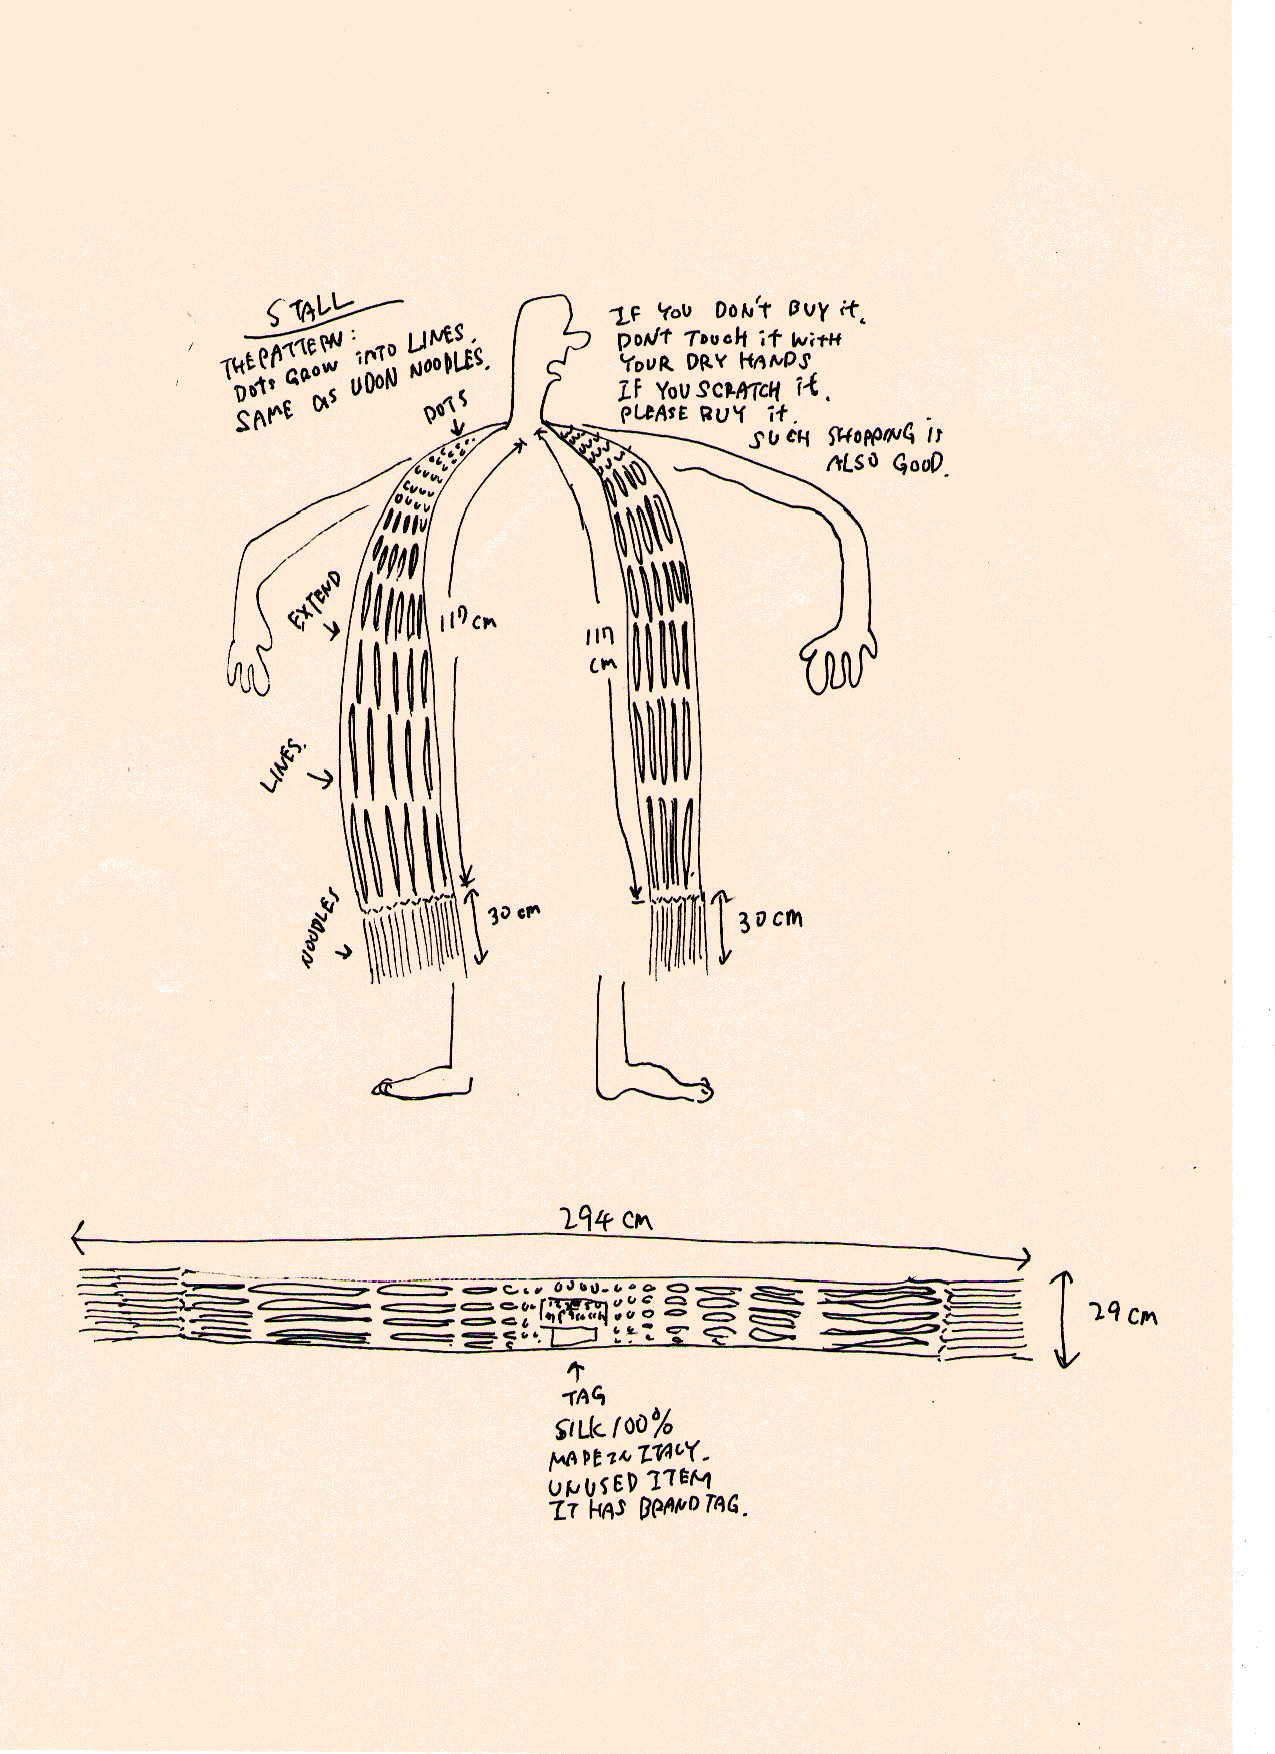 STALL
THE PATTERN:
DOTS GROW INTO LINES.
SAME AS UDON NOODLES.
IF YOU DON'T BUY it.
DON'T TOUCH it WITH
YOUR DRY HANDS
IF YOU SCRATCH it.
PLEASE BUY it.
SUCH SHOPPING iS
ALSO GOOD.
DOTS
EXTEND
LINES.
NOODLES
117 cm
117
cm
30 cm
30 cm
294 cm
29 cm
TAG
SILK 100%
MADE IN ITALY.
UNUSED ITEM
IT HAS BRAND TAG.